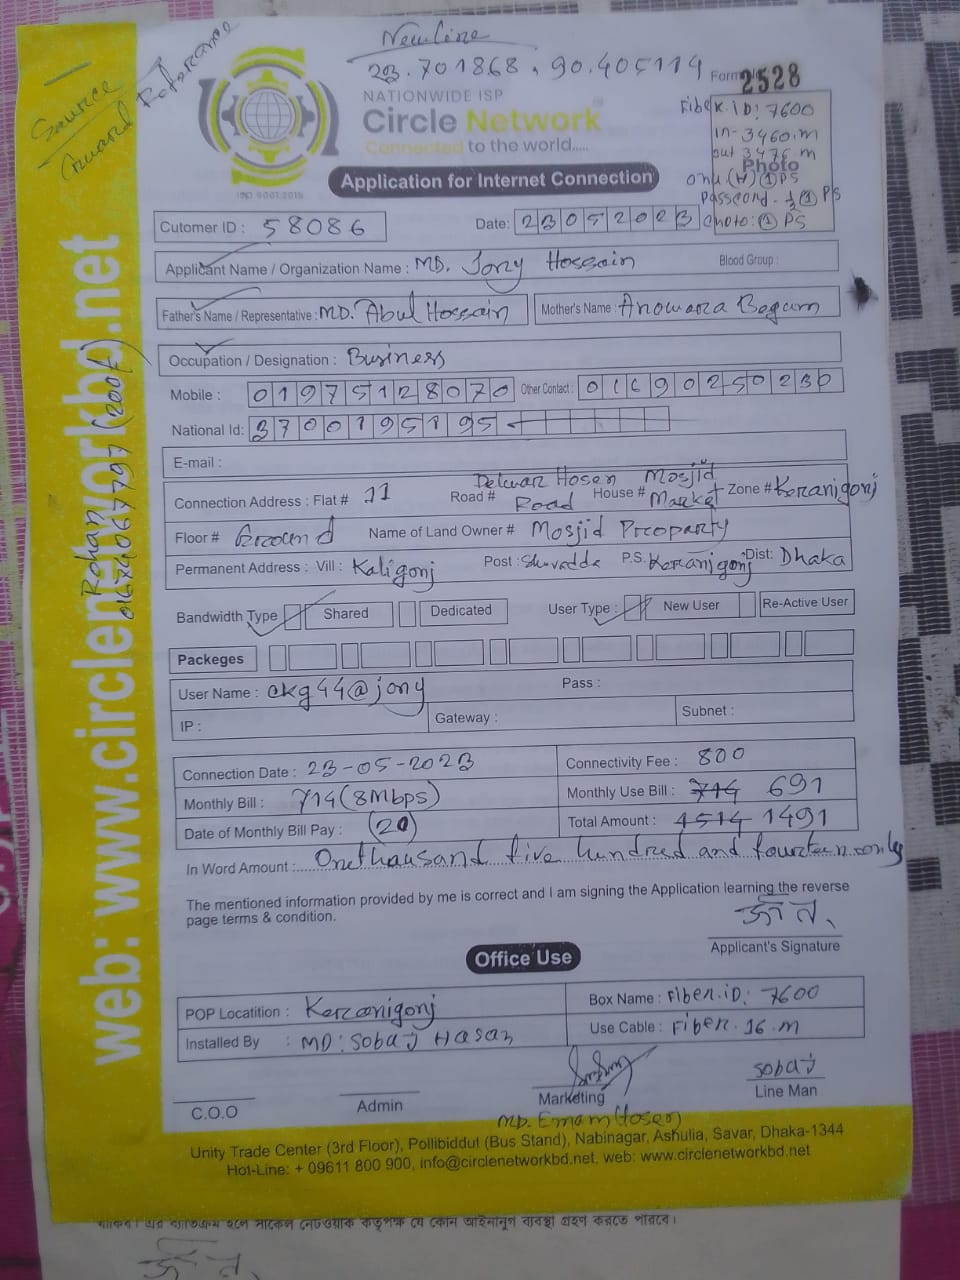 New Line
23.701868, 90.405114
Source
Guard Reference
NATIONWIDE ISP
Circle Network
Connected to the world.....
ISO 9001:2015
Form
2528
Fiber iD: 7600
in- 3460.m
out 3476 m
Photo
onu (H) ① PS
Photo: ① PS
Application for Internet Connection
Cutomer ID : 58086
Date: 23052023
Applicant Name / Organization Name : MD. Jony Hossain Blood Group :
Father's Name / Representative : MD. Abul Hossain Mother's Name : Anowara Begum
Occupation / Designation : Business
Mobile : 01975128070 Other Contact : 01690250230
National Id: 3700195195
E-mail :
Connection Address : Flat # 11 Road # Delwar Hosen Road House # Mosjid Market Zone # Keranigonj
Floor # Ground Name of Land Owner # Mosjid Proparty
Permanent Address : Vill : Kaligonj Post : Shuvadda P.S. Keranigonj Dist: Dhaka
Bandwidth Type Shared Dedicated User Type : New User Re-Active User
Packeges
User Name : ckg44@jony Pass :
IP : Gateway : Subnet :
Connection Date : 23-05-2023 Connectivity Fee : 800
Monthly Bill : 714 (8Mbps) Monthly Use Bill : 714 691
Date of Monthly Bill Pay : (20) Total Amount : 1514 1491
In Word Amount : One thausand five hundred and fourteen only
The mentioned information provided by me is correct and I am signing the Application learning the reverse
page terms & condition.
জনি
Applicant's Signature
Office Use
POP Locatition : Keranigonj Box Name : Fiber.iD: 7600
Installed By : MD: Sobaj Hasan Use Cable : Fiber. 16.m
C.O.O Admin Marketing Sobaj Line Man
MD. Emam Hosen
Unity Trade Center (3rd Floor), Pollibiddut (Bus Stand), Nabinagar, Ashulia, Savar, Dhaka-1344
Hot-Line: + 09611 800 900, info@circlenetworkbd.net, web: www.circlenetworkbd.net
web: www.circlenetworkbd.net
Rohan
হলে সার্কেল নেটওয়ার্ক কর্তৃপক্ষ যে কোন আইনানুগ ব্যবস্থা গ্রহণ করতে পারবে।